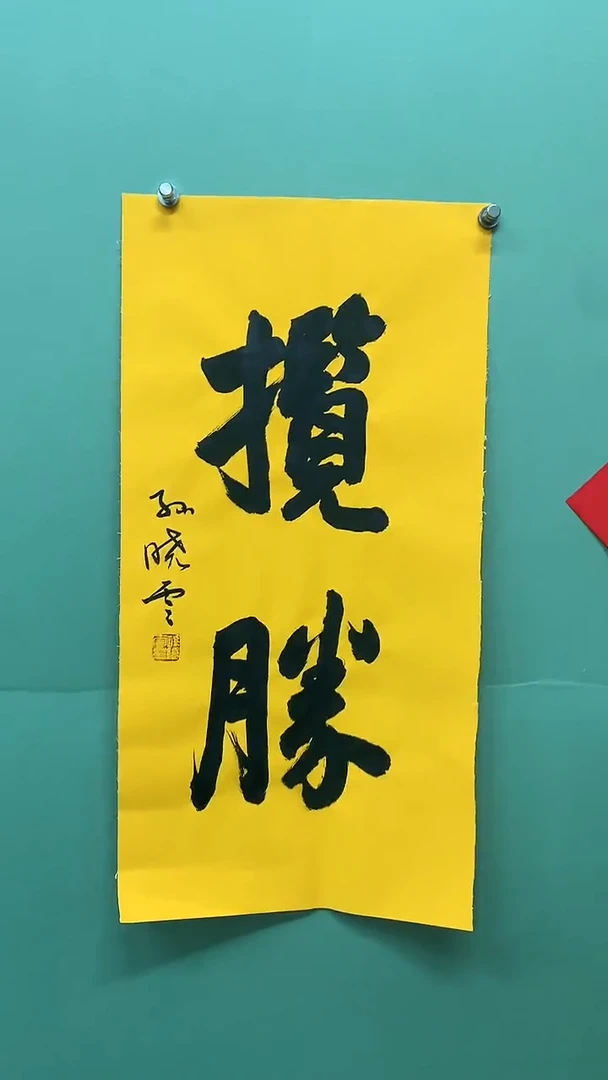 攬勝
孙晓雲